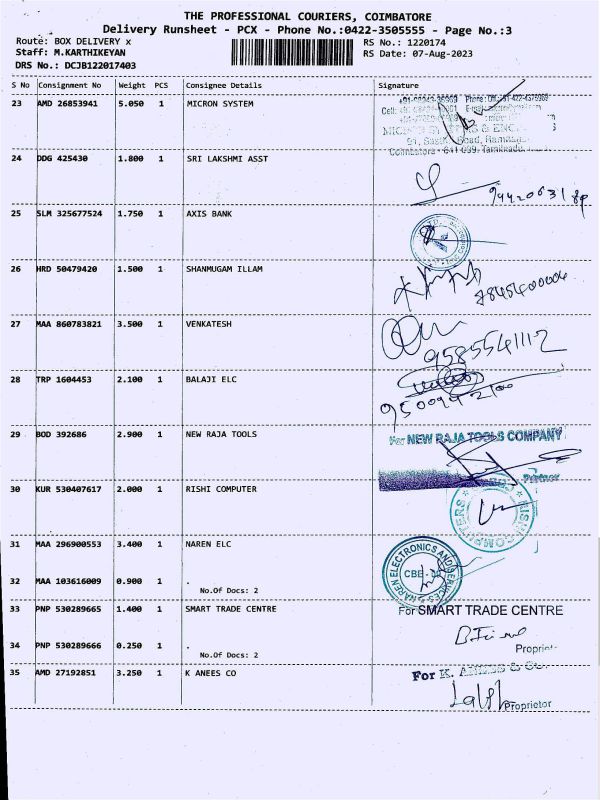 THE PROFESSIONAL COURIERS, COIMBATORE
Delivery Runsheet - PCX - Phone No.:0422-3505555 - Page No.:3
Route: BOX DELIVERY x RS No.: 1220174
Staff: M.KARTHIKEYAN RS Date: 07-Aug-2023
DRS No.: DCJB122017403
S No Consignment No Weight PCS Consignee Details Signature
23 AMD 26853941 5.050 1 MICRON SYSTEM
24 DDG 425430 1.800 1 SRI LAKSHMI ASST
25 SLM 325677524 1.750 1 AXIS BANK
26 HRD 50479420 1.500 1 SHANMUGAM ILLAM
27 MAA 860783821 3.500 1 VENKATESH
9585541112
28 TRP 1604453 2.100 1 BALAJI ELC
29 BOD 392686 2.900 1 NEW RAJA TOOLS For NEW RAJA TOOLS COMPANY
Partner
30 KUR 530407617 2.000 1 RISHI COMPUTER
RISHI COMPUTERS
31 MAA 296900553 3.400 1 NAREN ELC
NAREN ELECTRONICS AND SERVICES
CBE
32 MAA 103616009 0.900 1 .
No.Of Docs: 2
33 PNP 530289665 1.400 1 SMART TRADE CENTRE For SMART TRADE CENTRE
34 PNP 530289666 0.250 1 . Propriet
No.Of Docs: 2
35 AMD 27192851 3.250 1 K ANEES CO For K. ANEES & Co.
Proprietor